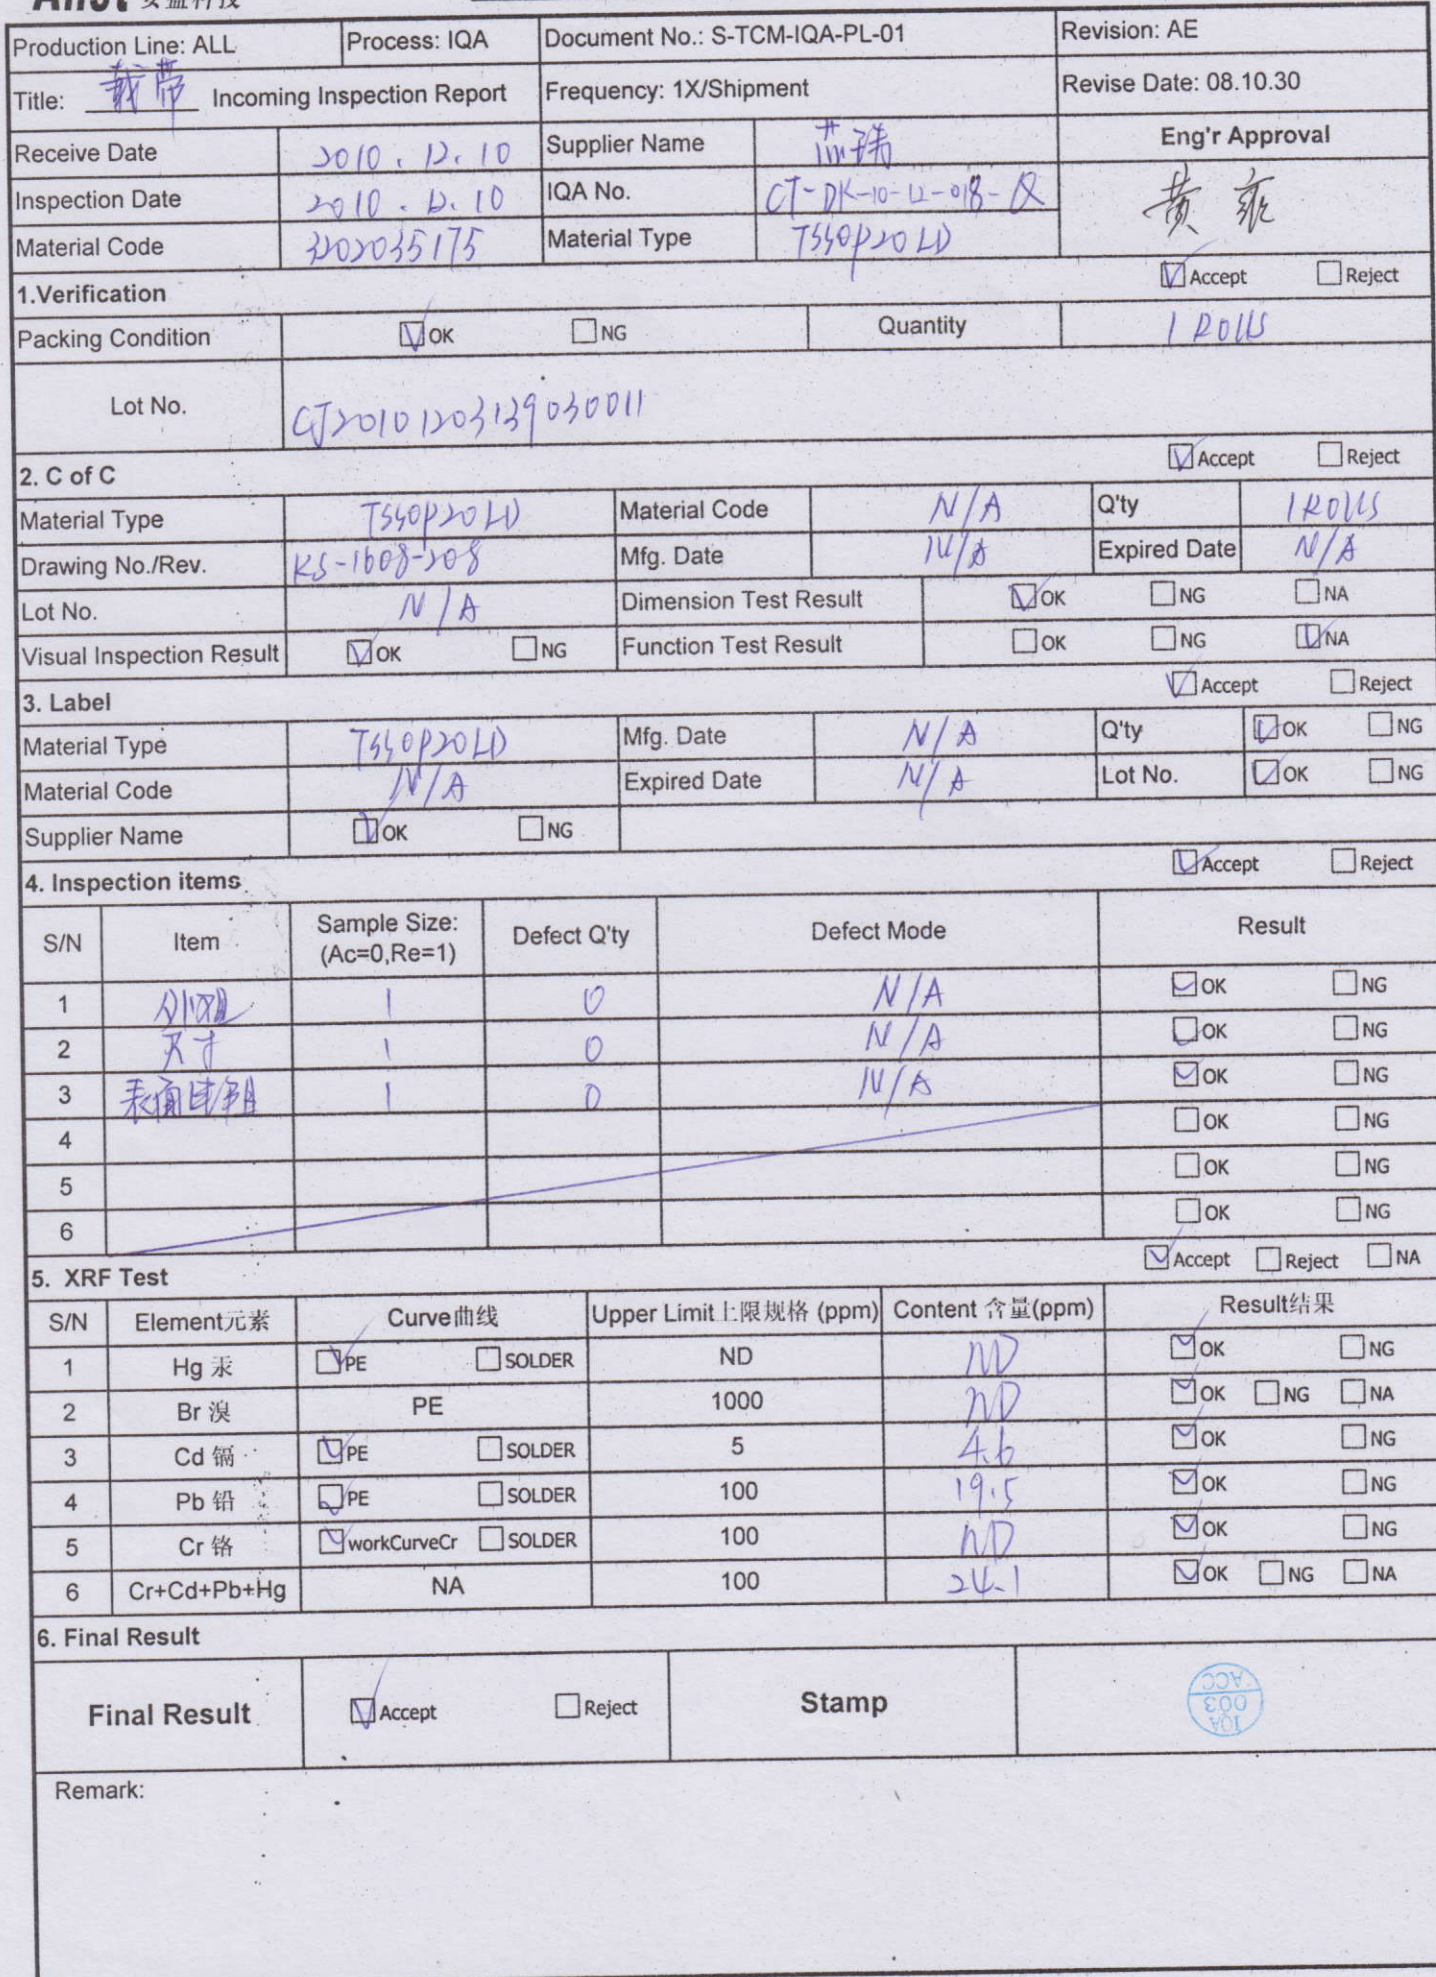 安盛科技
Production Line: ALL Process: IQA Document No.: S-TCM-IQA-PL-01 Revision: AE
Title: 载带 Incoming Inspection Report Frequency: 1X/Shipment Revise Date: 08.10.30
Receive Date 2010.12.10 Supplier Name Eng'r Approval
Inspection Date 2010.12.10 IQA No. CT-DK-10-12-018-Q 黄
Material Code 3202035175 Material Type TSSOP20LD
1.Verification Accept Reject
Packing Condition OK NG Quantity 1 ROLLS
Lot No. CJ20101203139030011
2. C of C Accept Reject
Material Type TSSOP20LD Material Code N/A Q'ty 1 ROLLS
Drawing No./Rev. KS-1608-208 Mfg. Date N/A Expired Date N/A
Lot No. N/A Dimension Test Result OK NG NA
Visual Inspection Result OK NG Function Test Result OK NG NA
3. Label Accept Reject
Material Type TSSOP20LD Mfg. Date N/A Q'ty OK NG
Material Code N/A Expired Date N/A Lot No. OK NG
Supplier Name OK NG
4. Inspection items Accept Reject
S/N Item Sample Size: Defect Q'ty Defect Mode Result
(Ac=0,Re=1)
1 外观 1 0 N/A OK NG
2 尺寸 1 0 N/A OK NG
3 表面电阻 1 0 N/A OK NG
4 OK NG
5 OK NG
6 OK NG
5. XRF Test Accept Reject NA
S/N Element元素 Curve曲线 Upper Limit上限规格 (ppm) Content 含量(ppm) Result结果
1 Hg 汞 PE SOLDER ND ND OK NG
2 Br 溴 PE 1000 ND OK NG NA
3 Cd 镉 PE SOLDER 5 4.6 OK NG
4 Pb 铅 PE SOLDER 100 19.5 OK NG
5 Cr 铬 workCurveCr SOLDER 100 ND OK NG
6 Cr+Cd+Pb+Hg NA 100 24.1 OK NG NA
6. Final Result
Final Result Accept Reject Stamp
IQA
003
ACC
Remark: